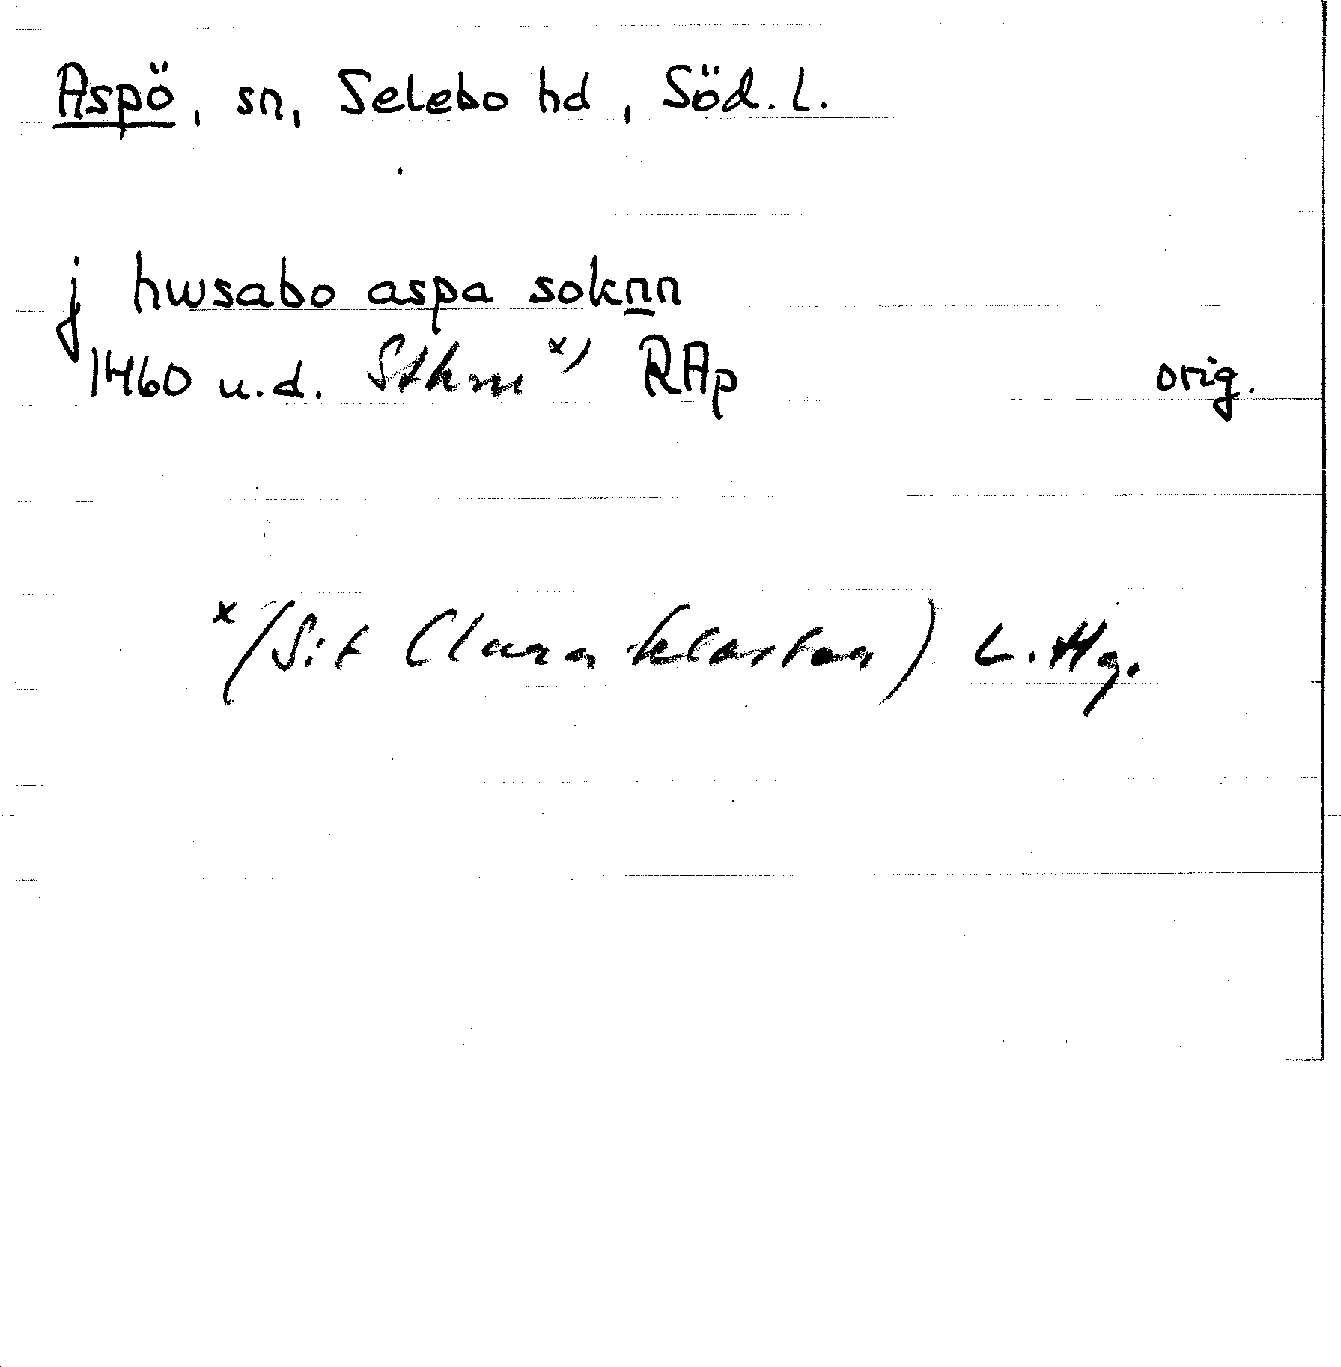 Aspö, sn, Selebo hd, Söd. l.
j hwsabo aspa soknn
1460 u.d. Sthm x) RAp orig.
x/(S:t Clara kloster) L. Hg.